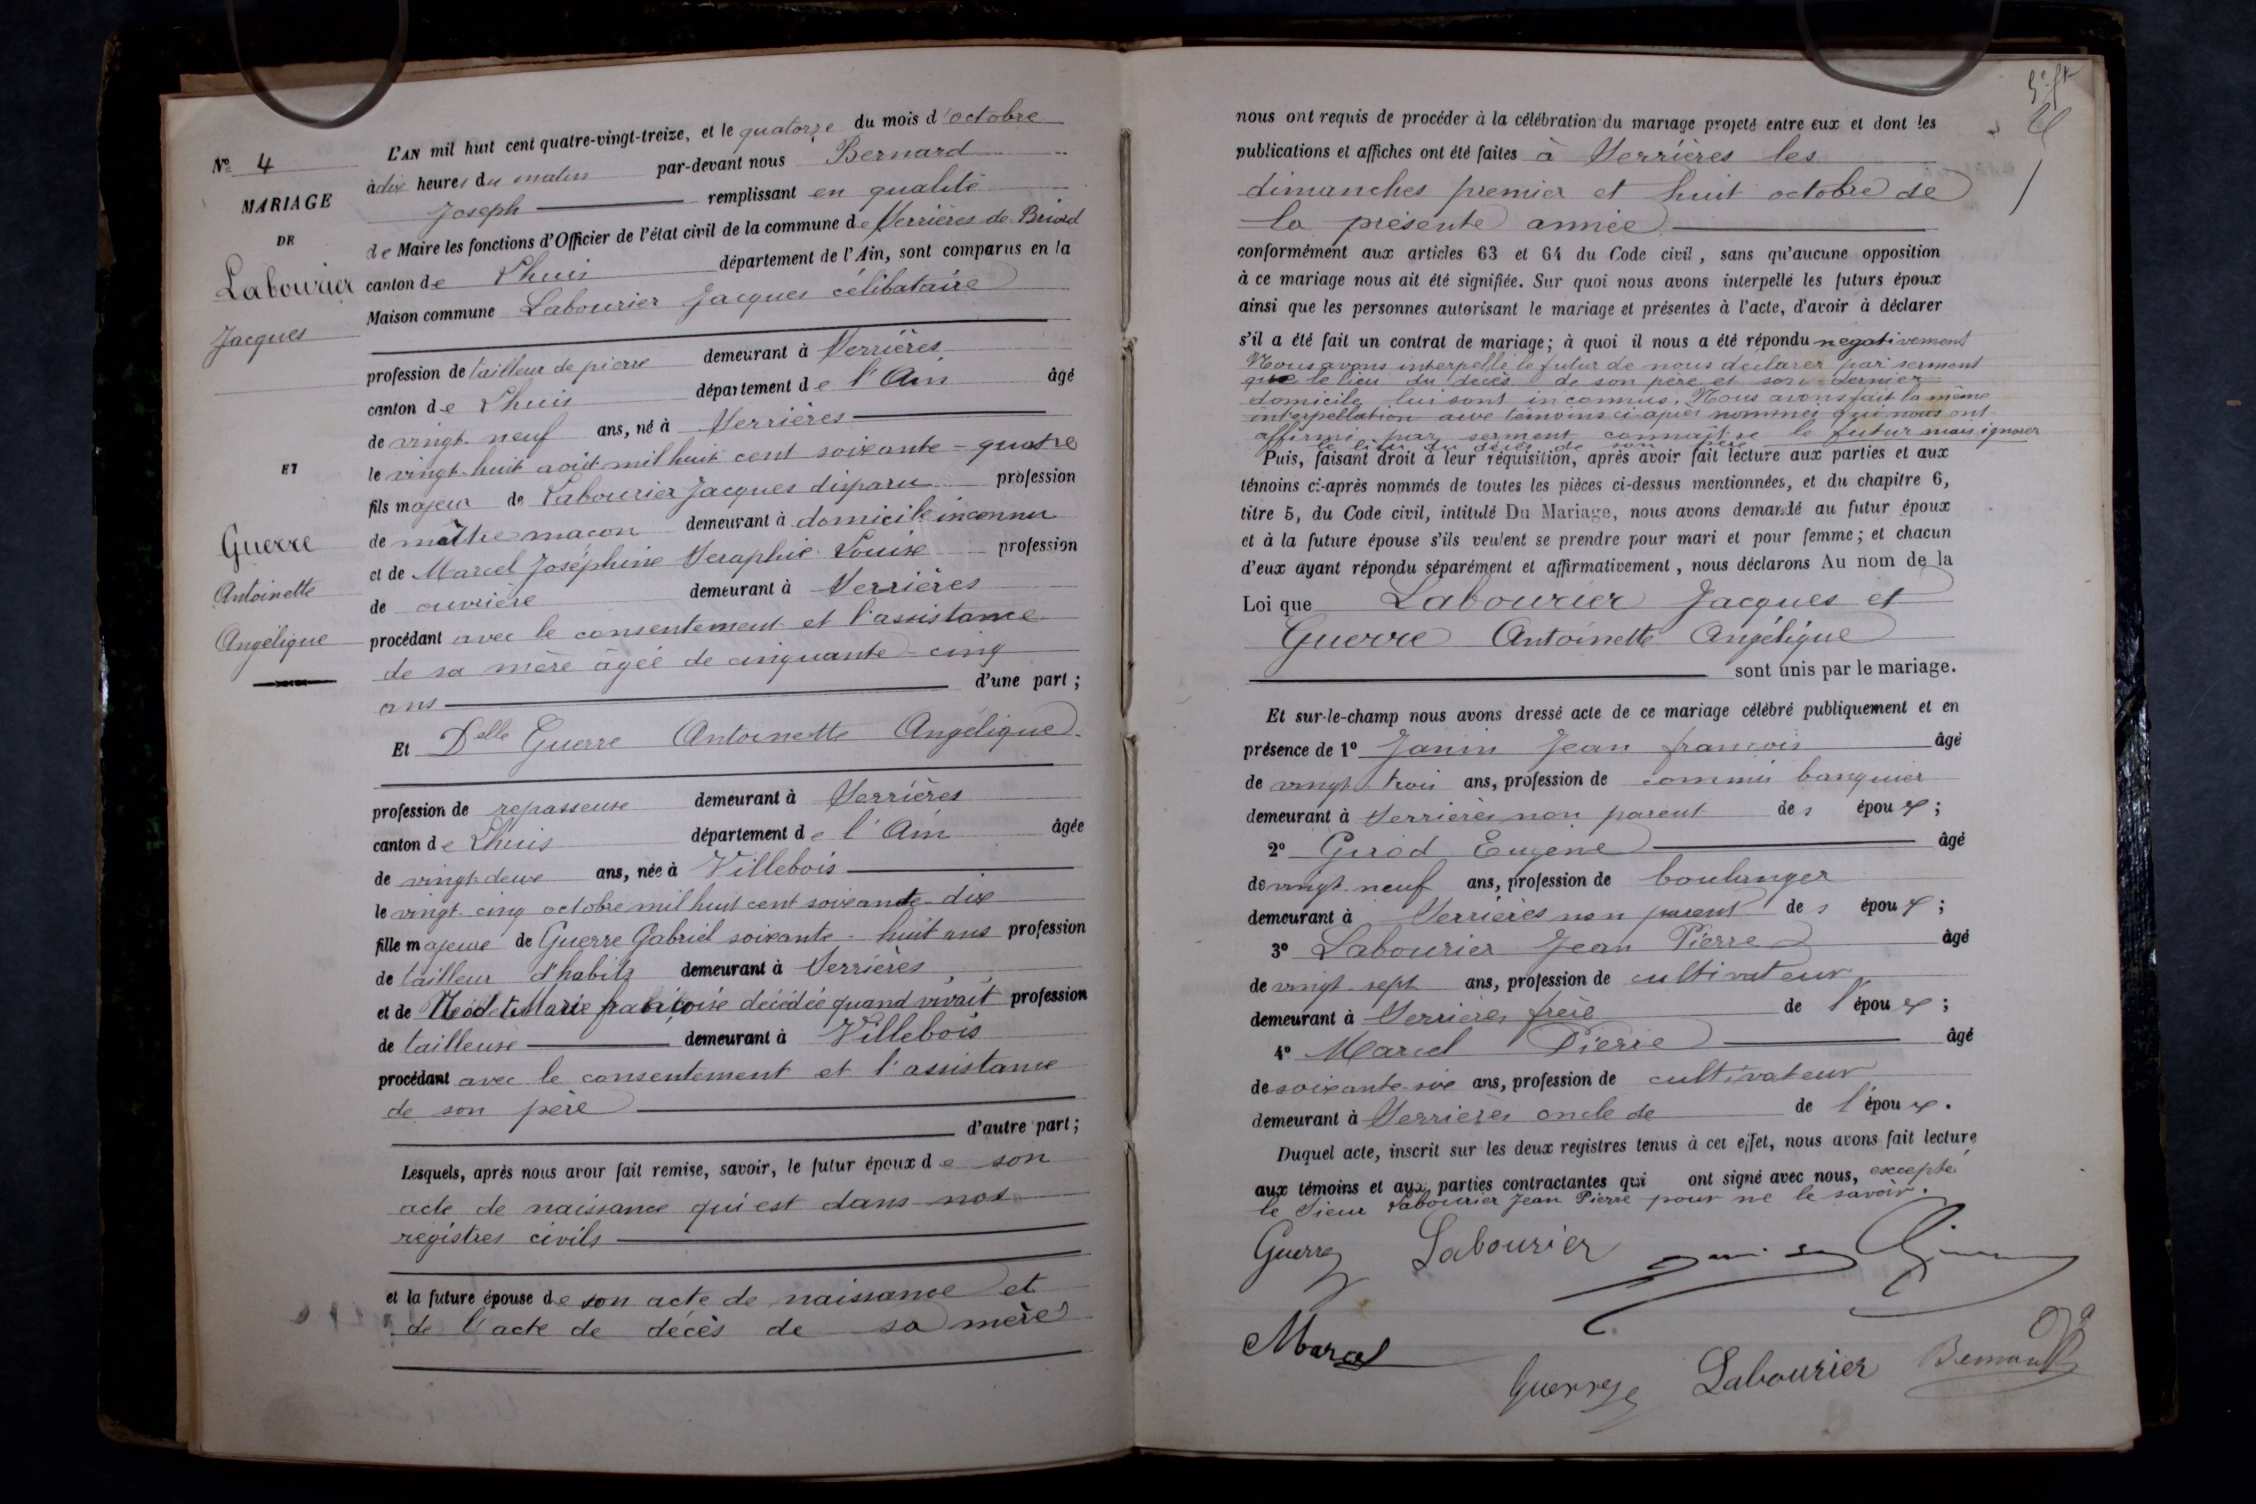 N° 4
MARIAGE
DE
Labourier
Jacques
ET
Guerre
Antoinette
Angélique
L'AN mil huit cent quatre-vingt-treize, et le quatorze du mois d'octobre
à dix heures du matin par-devant nous Bernard
Joseph remplissant en qualité
de Maire les fonctions d'Officier de l'état civil de la commune de Serrières de Briord
canton de Lhuis département de l'Ain, sont comparus en la
Maison commune Labourier Jacques célibataire
profession de tailleur de pierre demeurant à Serrières
canton de Lhuis département de l'Ain âgé
de vingt-neuf ans, né à Serrières
le vingt-huit août mil huit cent soixante-quatre
fils majeur de Labourier Jacques disparu profession
de maître maçon demeurant à domicile inconnu
et de Marcel Joséphine Seraphie Louise profession
de ouvrière demeurant à Serrières
procédant avec le consentement et l'assistance
de sa mère âgée de cinquante-cinq
ans d'une part ;
Et Delle Guerre Antoinette Angélique
profession de repasseuse demeurant à Serrières
canton de Lhuis département de l'Ain âgée
de vingt-deux ans, née à Villebois
le vingt-cinq octobre mil huit cent soixante-dix
fille majeure de Guerre Gabriel soixante-huit ans profession
de tailleur d'habits demeurant à Serrières
et de Marie françoise décédée quand vivait profession
de tailleuse demeurant à Villebois
procédant avec le consentement et l'assistance
de son père
d'autre part ;
Lesquels, après nous avoir fait remise, savoir, le futur époux de son
acte de naissance qui est dans nos
régistres civils
et la future épouse de son acte de naissance et
de l'acte de décès de sa mère
nous ont requis de procéder à la célébration du mariage projeté entre eux et dont les
publications et affiches ont été faites à Serrières les
dimanches premier et huit octobre de
la présente année
conformément aux articles 63 et 64 du Code civil, sans qu'aucune opposition
à ce mariage nous ait été signifiée. Sur quoi nous avons interpellé les futurs époux
ainsi que les personnes autorisant le mariage et présentes à l'acte, d'avoir à déclarer
s'il a été fait un contrat de mariage ; à quoi il nous a été répondu negativement
Nous avons interpellé le futur de nous déclarer par serment
que le lieu du décès de son père et son dernier
domicile lui sont inconnus. Nous avons fait la même
interpellation aux témoins ci-après nommés qui nous ont
affirmé par serment connaître le futur mais ignorer
le lieu du décès de son père
Puis, faisant droit à leur réquisition, après avoir fait lecture aux parties et aux
témoins ci-après nommés de toutes les pièces ci-dessus mentionnées, et du chapitre 6,
titre 5, du Code civil, intitulé Du Mariage, nous avons demandé au futur époux
et à la future épouse s'ils veulent se prendre pour mari et pour femme ; et chacun
d'eux ayant répondu séparément et affirmativement, nous déclarons Au nom de la
Loi que Labourier Jacques et
Guerre Antoinette Angélique
sont unis par le mariage.
Et sur-le-champ nous avons dressé acte de ce mariage célébré publiquement et en
présence de 1° Janin Jean françois âgé
de vingt-trois ans, profession de commis banquier
demeurant à Serrières non parent des époux ;
2° Girod Eugène âgé
de vingt-neuf ans, profession de boulanger
demeurant à Serrières non parent des époux ;
3° Labourier Jean Pierre âgé
de vingt-sept ans, profession de cultivateur
demeurant à Serrières frère de l'époux ;
4° Marcel Pierre âgé
de soixante-six ans, profession de cultivateur
demeurant à Serrières oncle de de l'époux.
Duquel acte, inscrit sur les deux registres tenus à cet effet, nous avons fait lecture
aux témoins et aux parties contractantes qui ont signé avec nous, excepté
le Sieur Labourier Jean Pierre pour ne le savoir.
Guerre Labourier
Marcel
Guerre Labourier Bernard